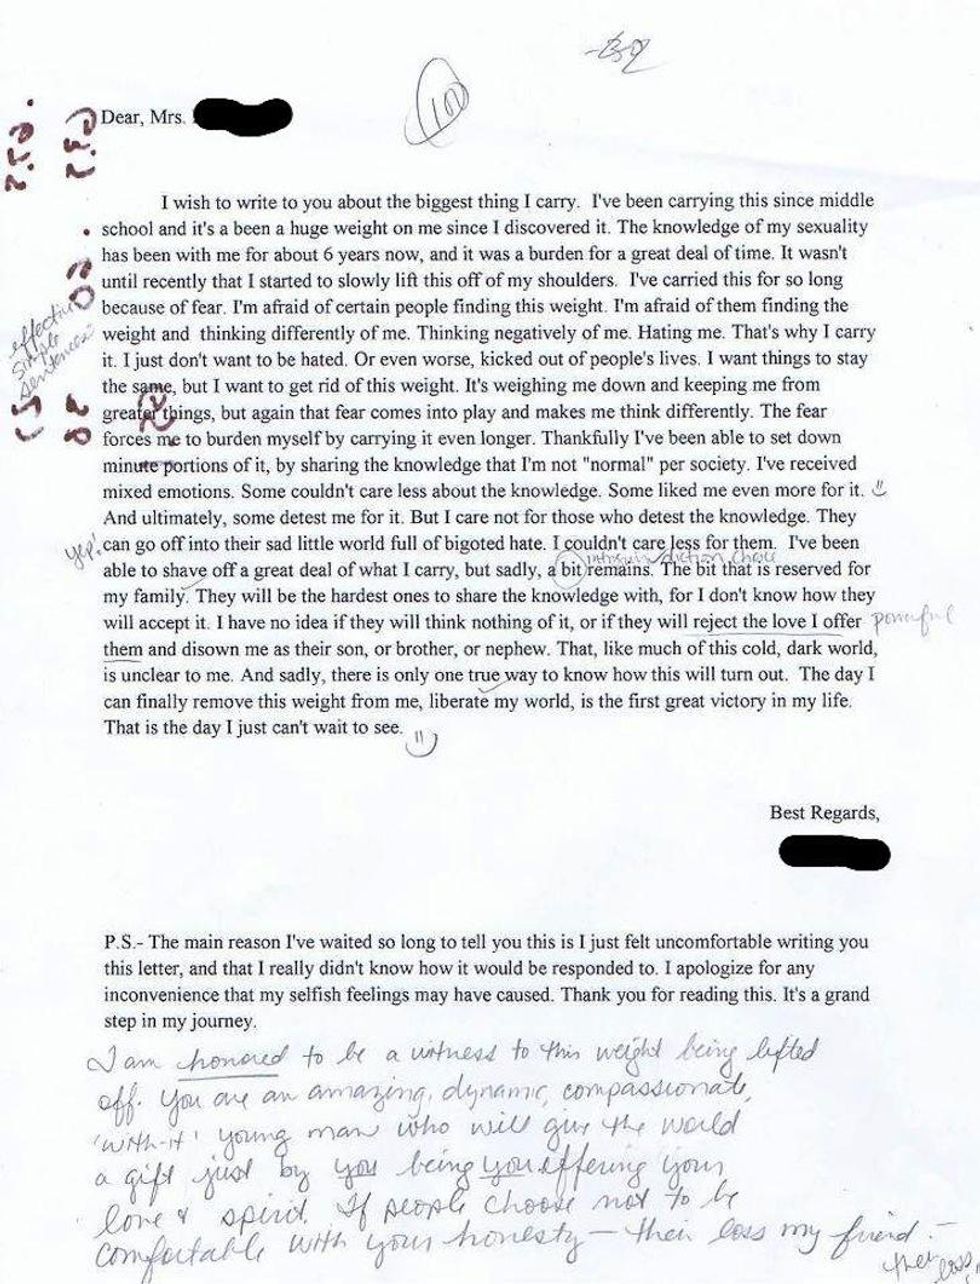 100
Dear, Mrs.
I wish to write to you about the biggest thing I carry.  I've been carrying this since middle
school and it's a been a huge weight on me since I discovered it. The knowledge of my sexuality
has been with me for about 6 years now, and it was a burden for a great deal of time. It wasn't
until recently that I started to slowly lift this off of my shoulders.  I've carried this for so long
because of fear. I'm afraid of certain people finding this weight. I'm afraid of them finding the
effective
simple
sentences
weight and  thinking differently of me. Thinking negatively of me. Hating me. That's why I carry
it. I just don't want to be hated. Or even worse, kicked out of people's lives. I want things to stay
the same, but I want to get rid of this weight. It's weighing me down and keeping me from
greater things, but again that fear comes into play and makes me think differently. The fear
forces me to burden myself by carrying it even longer. Thankfully I've been able to set down
minute portions of it, by sharing the knowledge that I'm not "normal" per society. I've received
mixed emotions. Some couldn't care less about the knowledge. Some liked me even more for it.
And ultimately, some detest me for it. But I care not for those who detest the knowledge. They
yep! can go off into their sad little world full of bigoted hate. I couldn't care less for them.  I've been
diction choice
able to shave off a great deal of what I carry, but sadly, a bit remains. The bit that is reserved for
my family. They will be the hardest ones to share the knowledge with, for I don't know how they
will accept it. I have no idea if they will think nothing of it, or if they will reject the love I offer powerful
them and disown me as their son, or brother, or nephew. That, like much of this cold, dark world,
is unclear to me. And sadly, there is only one true way to know how this will turn out.  The day I
can finally remove this weight from me, liberate my world, is the first great victory in my life.
That is the day I just can't wait to see.
Best Regards,
P.S.- The main reason I've waited so long to tell you this is I just felt uncomfortable writing you
this letter, and that I really didn't know how it would be responded to. I apologize for any
inconvenience that my selfish feelings may have caused. Thank you for reading this. It's a grand
step in my journey.
I am honored to be a witness to this weight being lifted
off. You are an amazing, dynamic, compassionate,
'with-it' young man who will give the world
a gift just by you being you offering your
love & spirit. If people choose not to be
comfortable with your honesty – their loss my friend –
their loss.